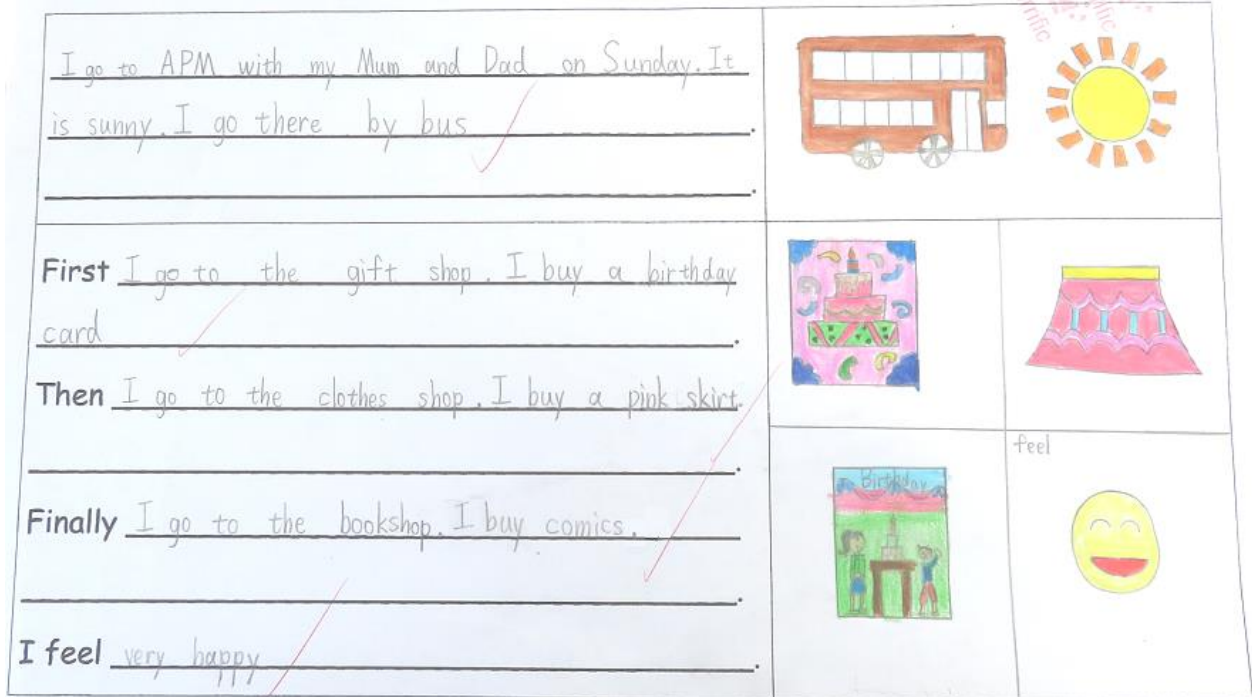 I go to APM with my Mum and Dad on Sunday. It
is sunny. I go there by bus.
First I go to the gift shop. I buy a birthday
card.
Then I go to the clothes shop. I buy a pink skirt.
Finally I go to the bookshop. I buy comics.
I feel very happy.
feel
Birthday